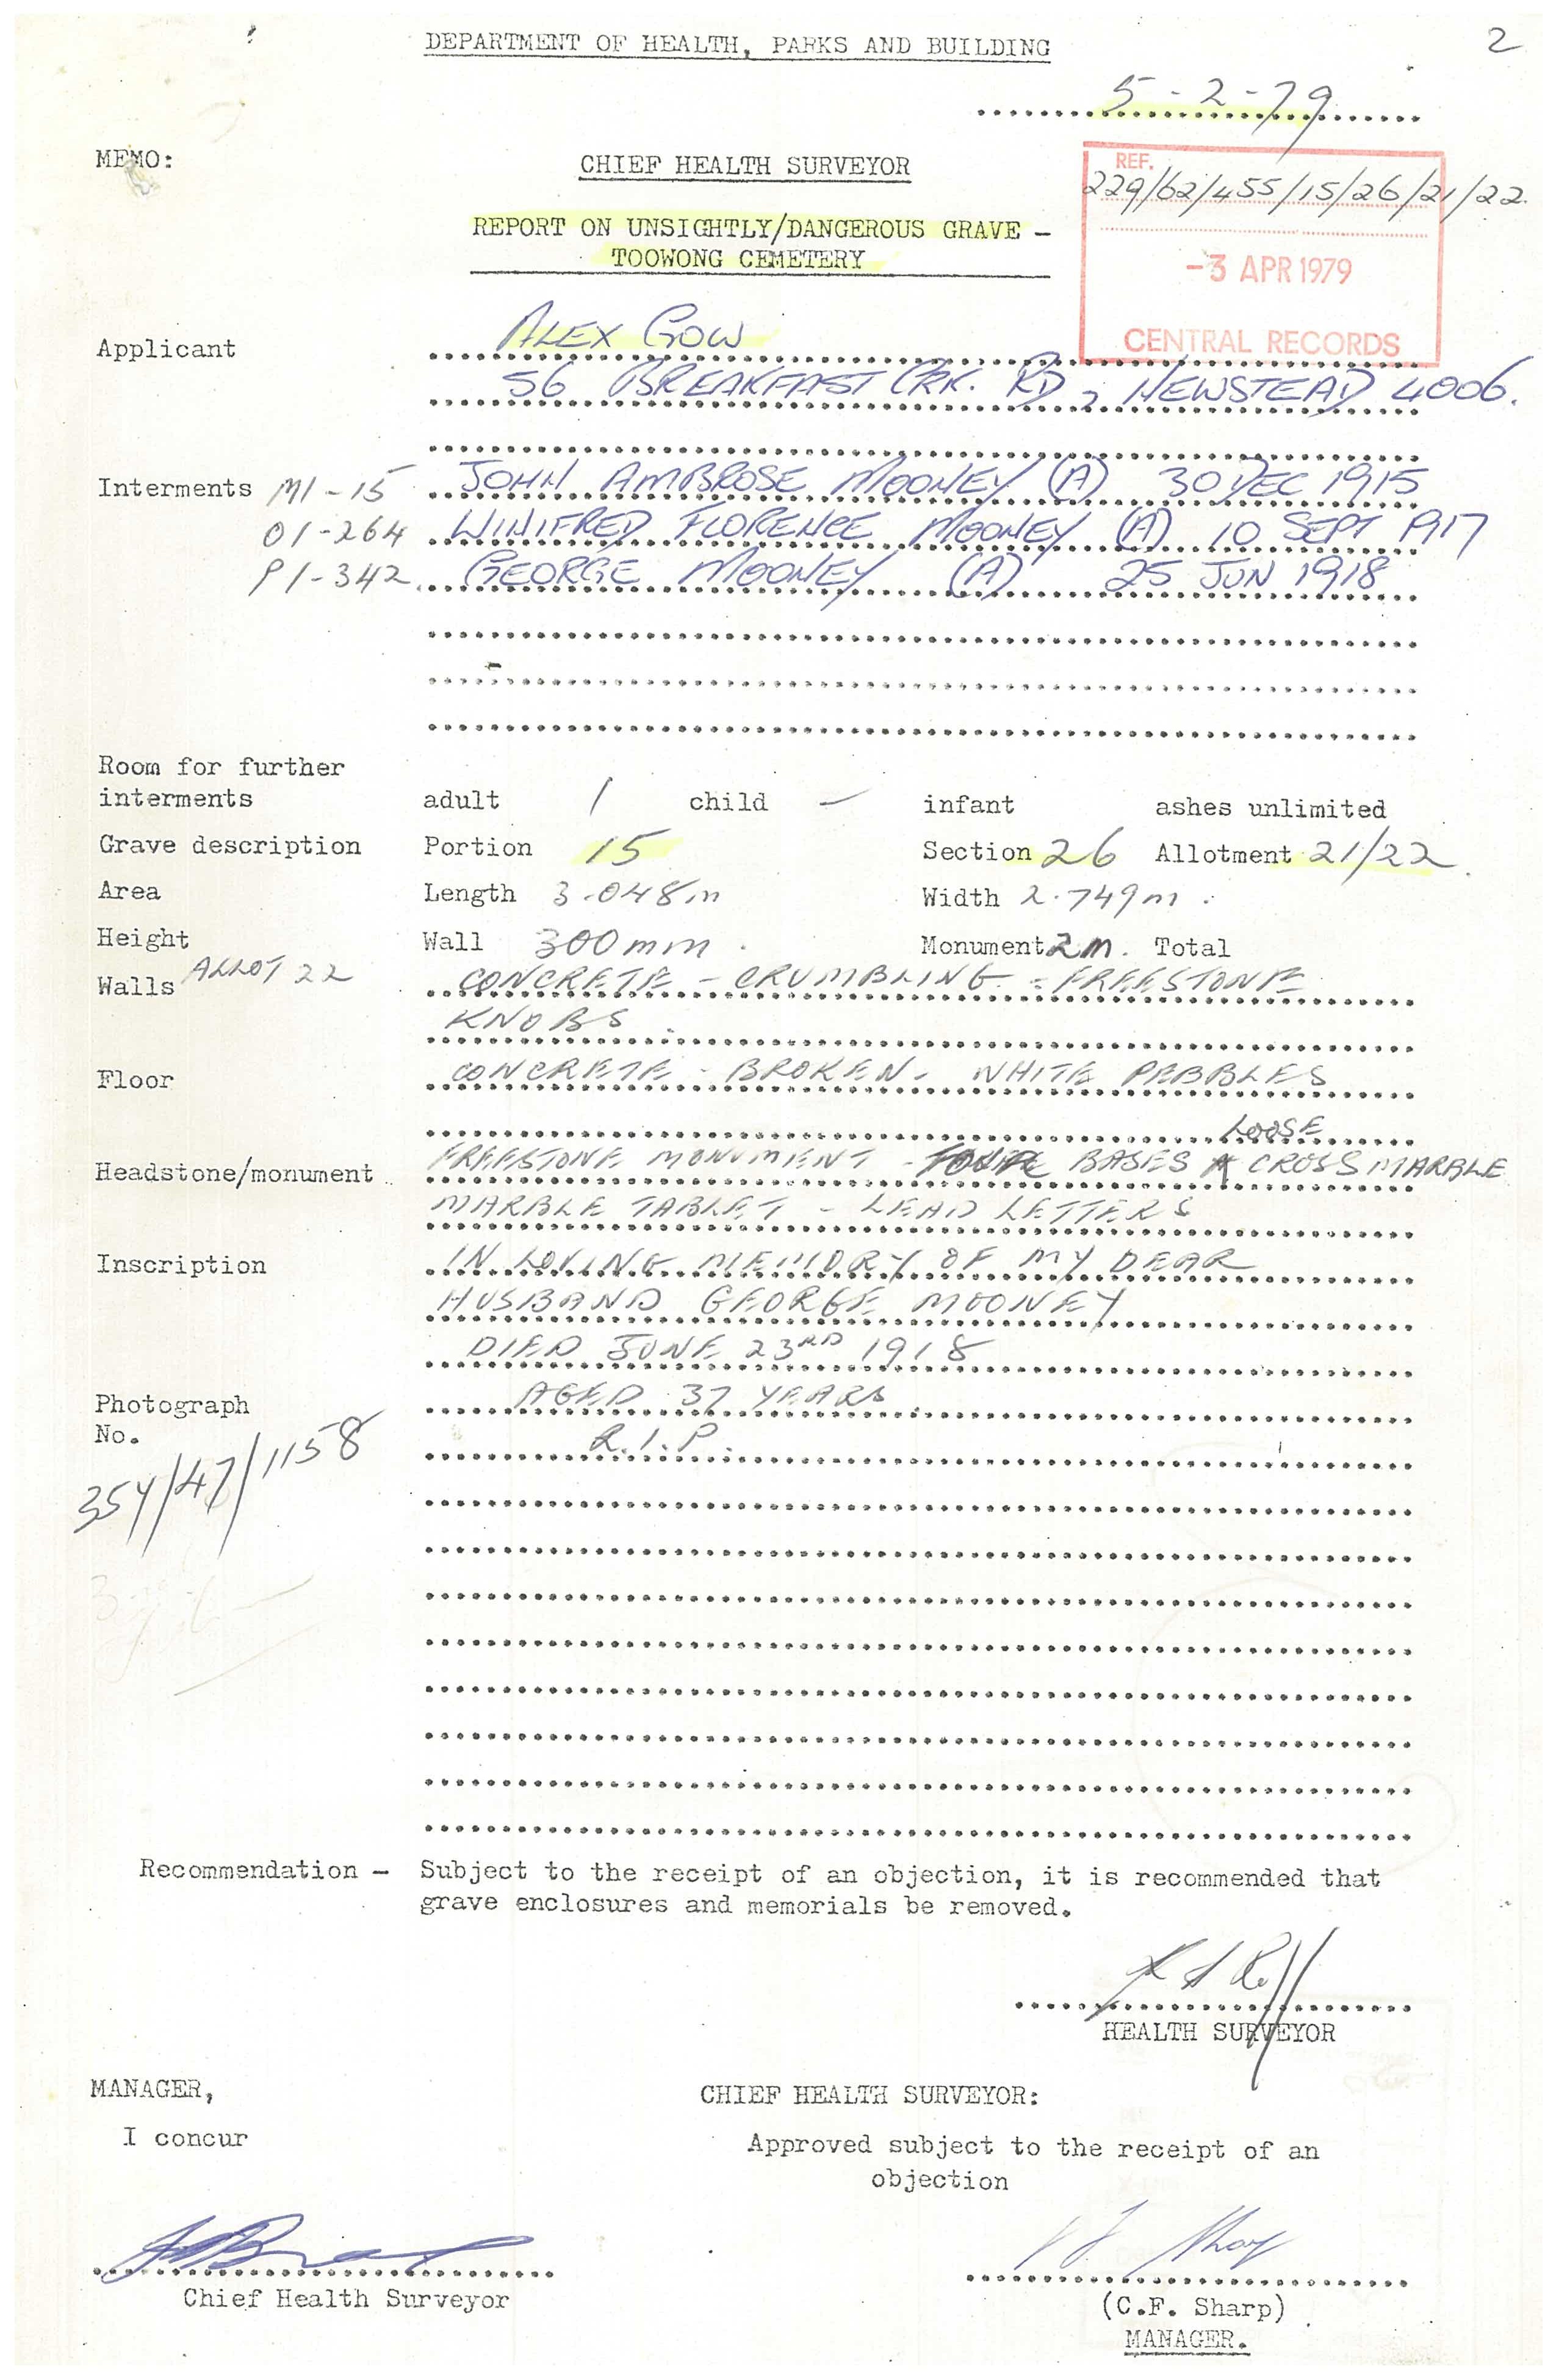 DEPARTMENT OF HEALTH, PARKS AND BUILDING
2
5-2-79
MEMO:
CHIEF HEALTH SURVEYOR
REF.
229/62/455/15/26/21/22
REPORT ON UNSIGHTLY/DANGEROUS GRAVE -
TOOWONG CEMETERY
-3 APR 1979
CENTRAL RECORDS
Applicant ALEX GOW
56 BREAKFAST CRK. RD, NEWSTEAD 4006.
Interments M1-15 JOHN AMBROSE MOONEY (A) 30 DEC 1915
O1-264 WINIFRED FLORENCE MOONEY (A) 10 SEPT 1917
P1-342 GEORGE MOONEY (A) 25 JUN 1918
Room for further
interments adult 1 child - infant ashes unlimited
Grave description Portion 15 Section 26 Allotment 21/22
Area Length 3.048m Width 2.749m.
Height Wall 300mm. Monument 2m. Total
Walls ALLOT 22 CONCRETE - CRUMBLING - FREESTONE
KNOBS
Floor CONCRETE - BROKEN - WHITE PEBBLES
LOOSE
Headstone/monument FREESTONE MONUMENT - BASES & CROSS MARBLE
MARBLE TABLET - LEAD LETTERS
Inscription IN LOVING MEMORY OF MY DEAR
HUSBAND GEORGE MOONEY
DIED JUNE 23RD 1918
AGED 37 YEARS
R.I.P.
Photograph
No.
354/47/1158
Recommendation - Subject to the receipt of an objection, it is recommended that
grave enclosures and memorials be removed.
HEALTH SURVEYOR
MANAGER,
CHIEF HEALTH SURVEYOR:
I concur
Approved subject to the receipt of an
objection
Chief Health Surveyor
(C.F. Sharp)
MANAGER.